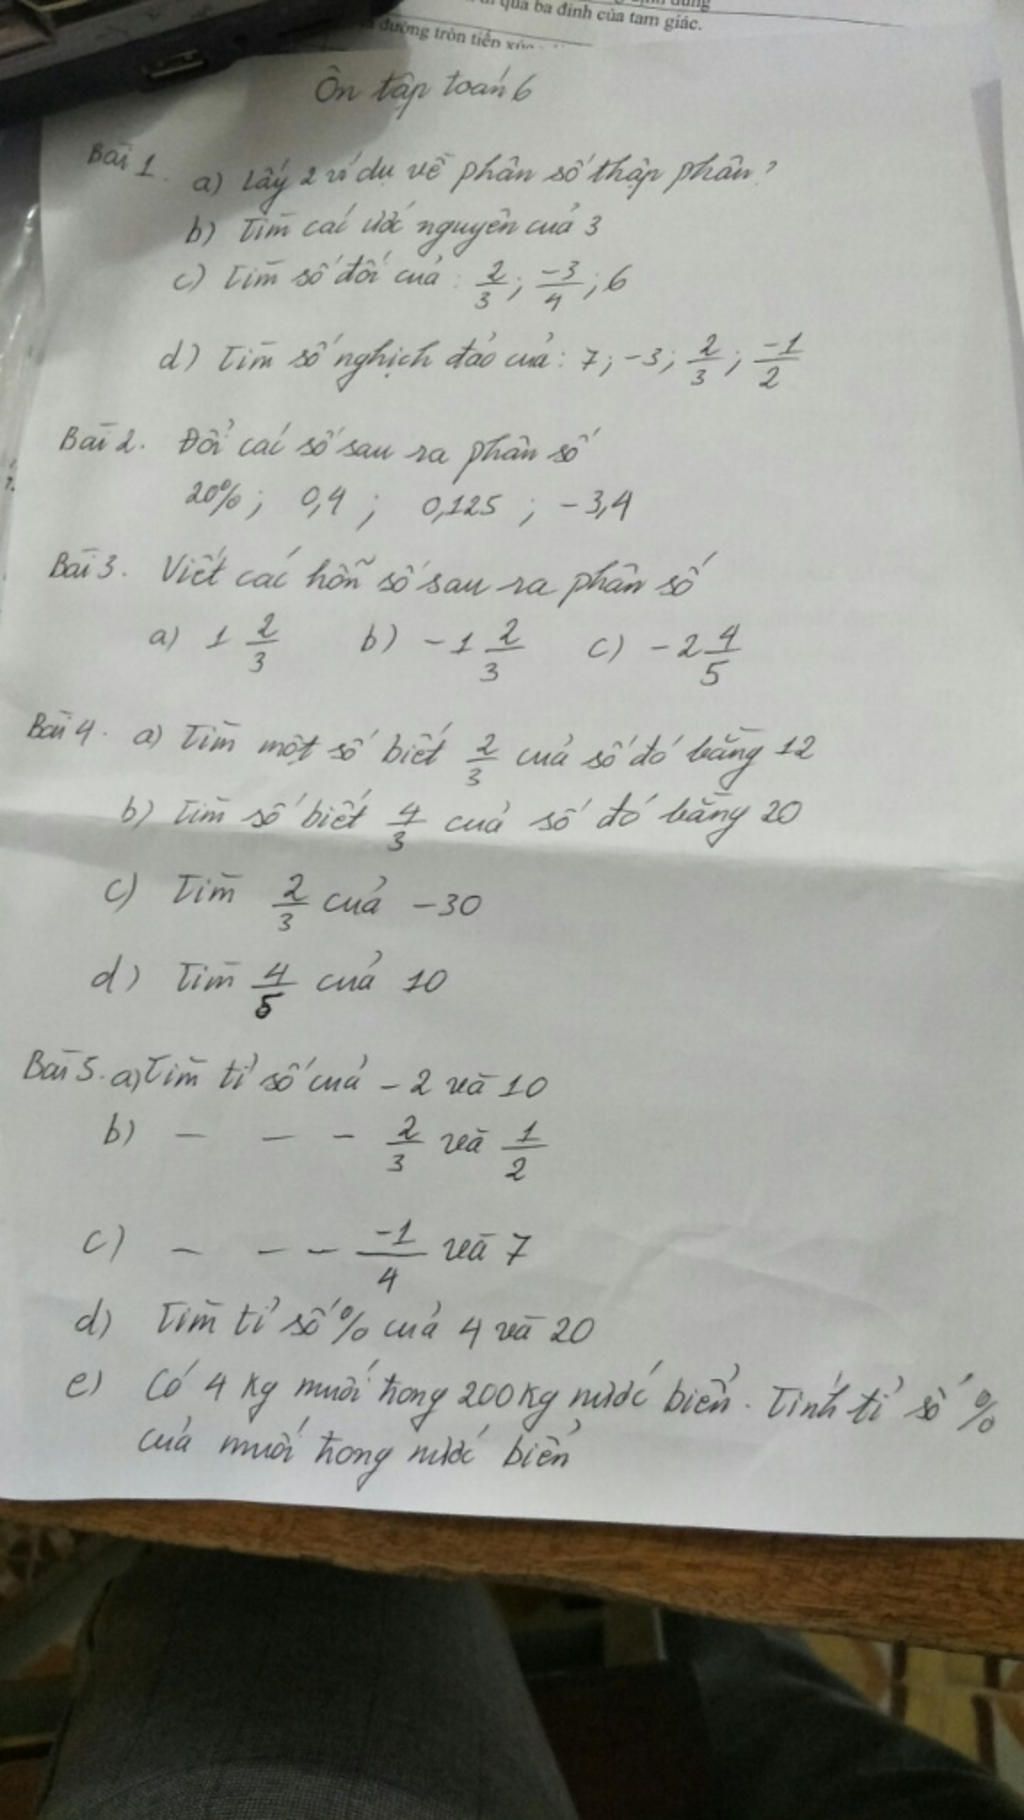 qua ba đỉnh của tam giác.
đường tròn tiếp
Ôn tập toán 6
Bài 1. a) Lấy 2 ví dụ về phân số thập phân?
b) Tìm các ước nguyên của 3
c) Tìm số đối của : 2/3 ; -3/4 ; 6
d) Tìm số nghịch đảo của : 7 ; -3 ; 2/3 ; -1/2
Bài 2. Đổi các số sau ra phân số
20% ; 0,4 ; 0,125 ; -3,4
Bài 3. Viết các hỗn số sau ra phân số
a) 1 2/3 b) -1 2/3 c) -2 4/5
Bài 4. a) Tìm một số biết 2/3 của số đó bằng 12
b) Tìm số biết 4/3 của số đó bằng 20
c) Tìm 2/3 của -30
d) Tìm 4/5 của 10
Bài 5. a) Tìm tỉ số của -2 và 10
b) - - - 2/3 và 1/2
c) - - - -1/4 và 7
d) Tìm tỉ số % của 4 và 20
e) Có 4 kg muối trong 200 kg nước biển. Tính tỉ số %
của muối trong nước biển